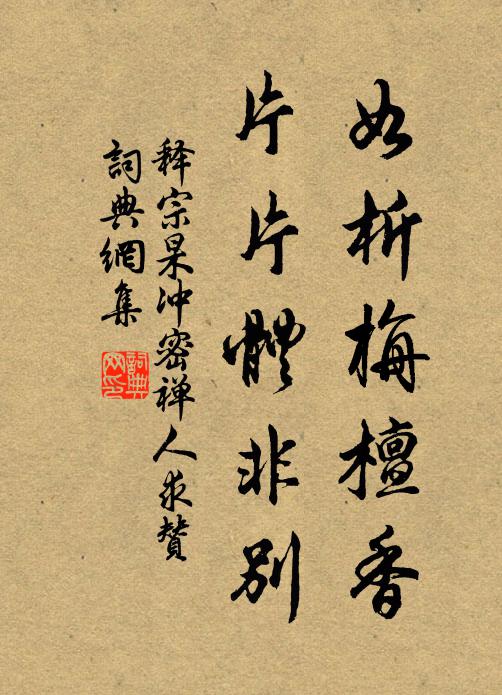 如析梅檀香
片片體非別
释宗杲冲密禅人求贊
詞典網集
詞典网印